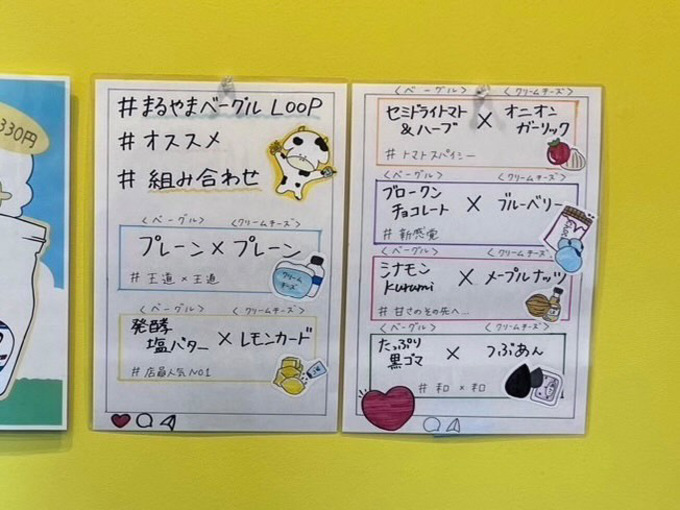 330円
#まるやまベーグル LOOP
#オススメ
#組み合わせ
〈ベーグル〉 〈クリームチーズ〉
プレーン×プレーン
#王道×王道
クリーム
チーズ
〈ベーグル〉 〈クリームチーズ〉
発酵
塩バター × レモンカード
#店員人気NO1
〈ベーグル〉 〈クリームチーズ〉
セミドライトマト
&ハーブ × オニオン
ガーリック
#トマトスパイシー
〈ベーグル〉 〈クリームチーズ〉
ブロークン
チョコレート × ブルーベリー
#新感覚
〈ベーグル〉 〈クリームチーズ〉
シナモン
Kurumi × メープルナッツ
#甘さのその先へ…
〈ベーグル〉 〈クリームチーズ〉
たっぷり
黒ゴマ × つぶあん
#和×和